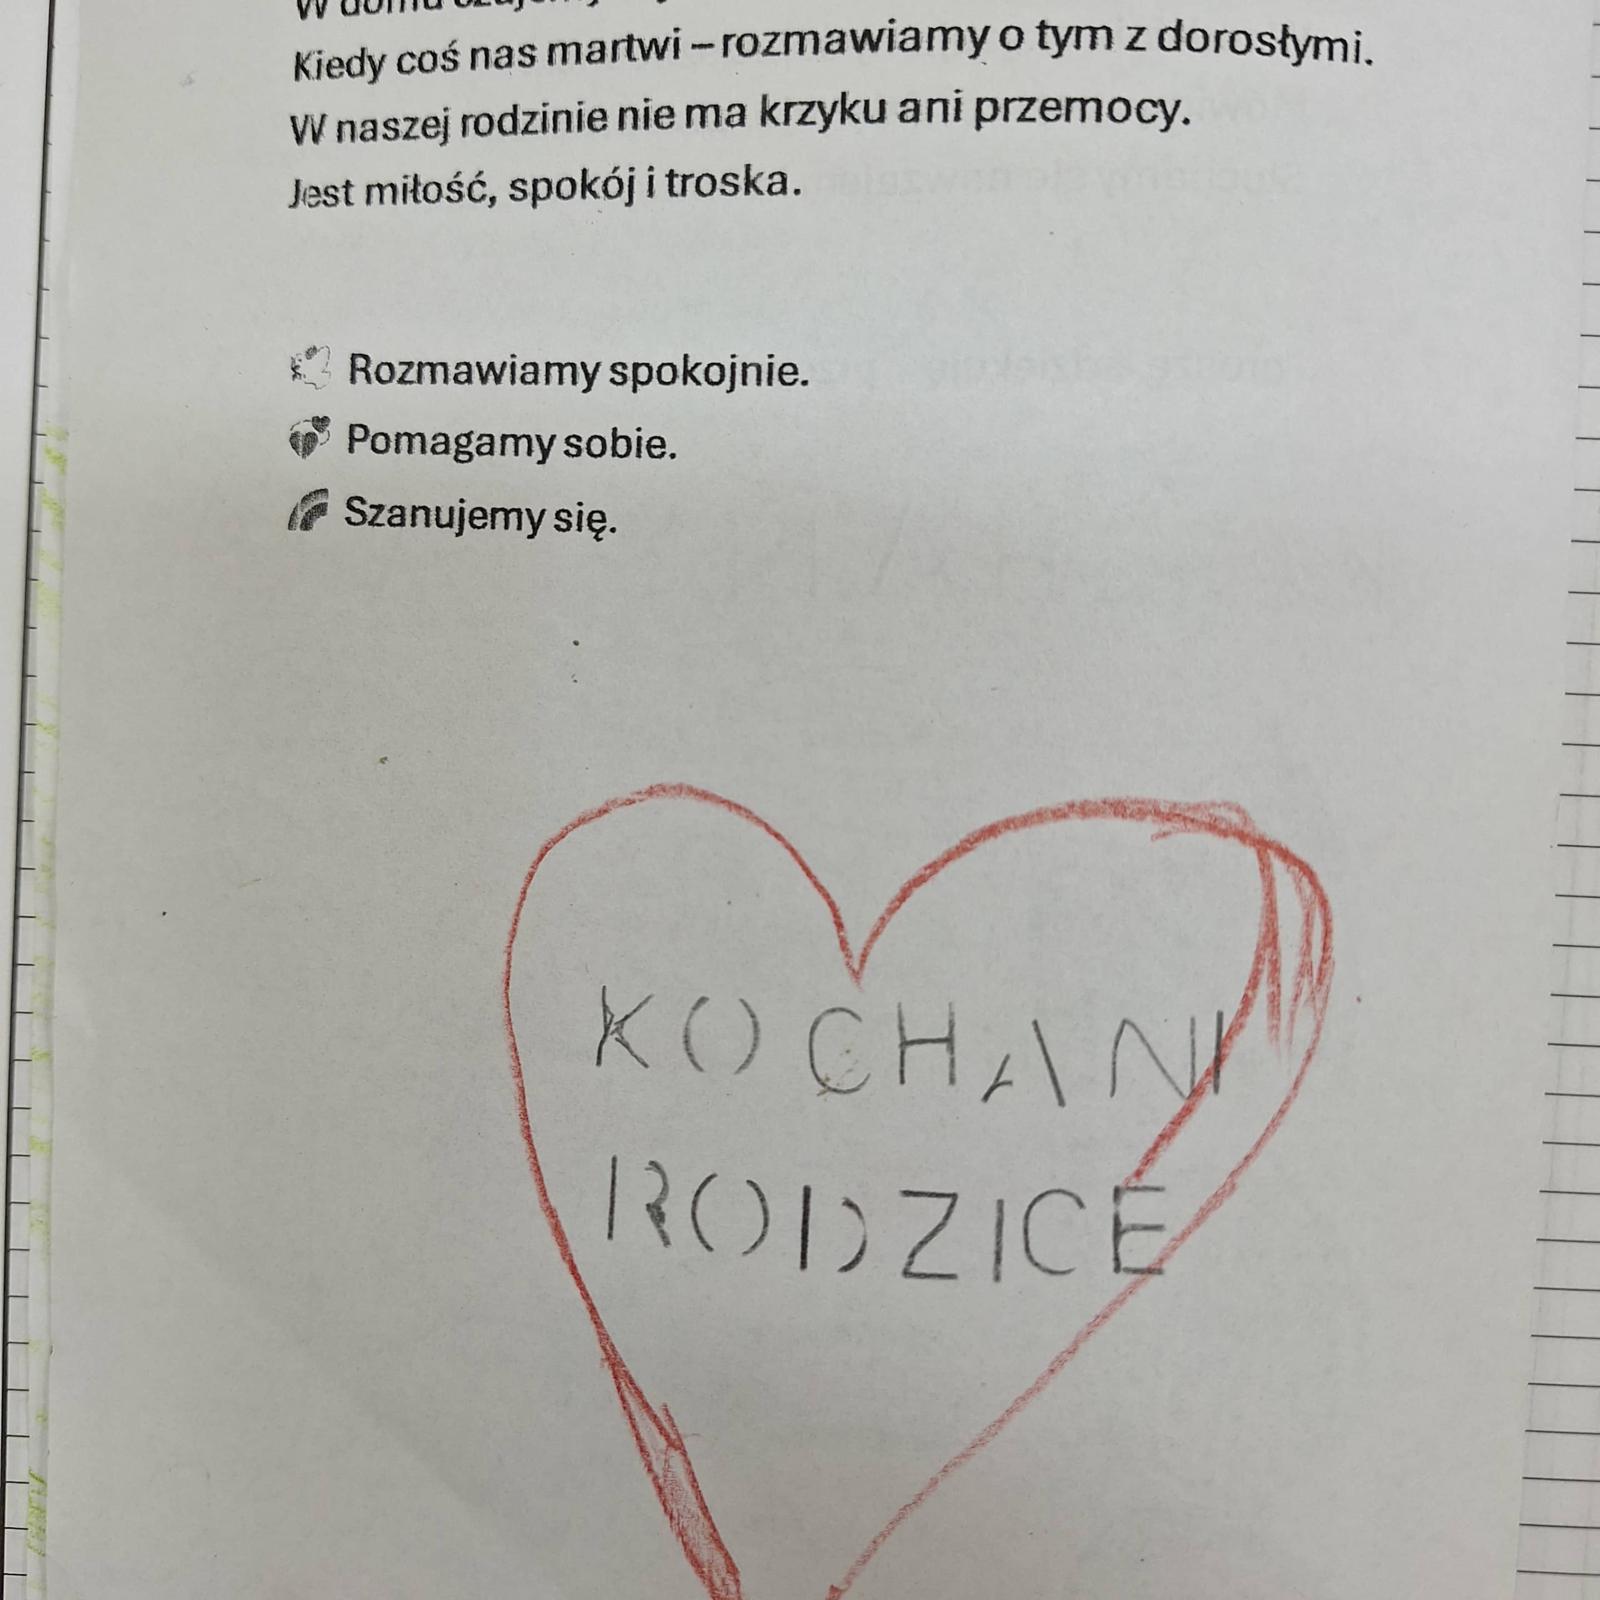 W domu
Kiedy coś nas martwi – rozmawiamy o tym z dorosłymi.
W naszej rodzinie nie ma krzyku ani przemocy.
Jest miłość, spokój i troska.
Rozmawiamy spokojnie.
Pomagamy sobie.
Szanujemy się.
KOCHANI
RODZICE